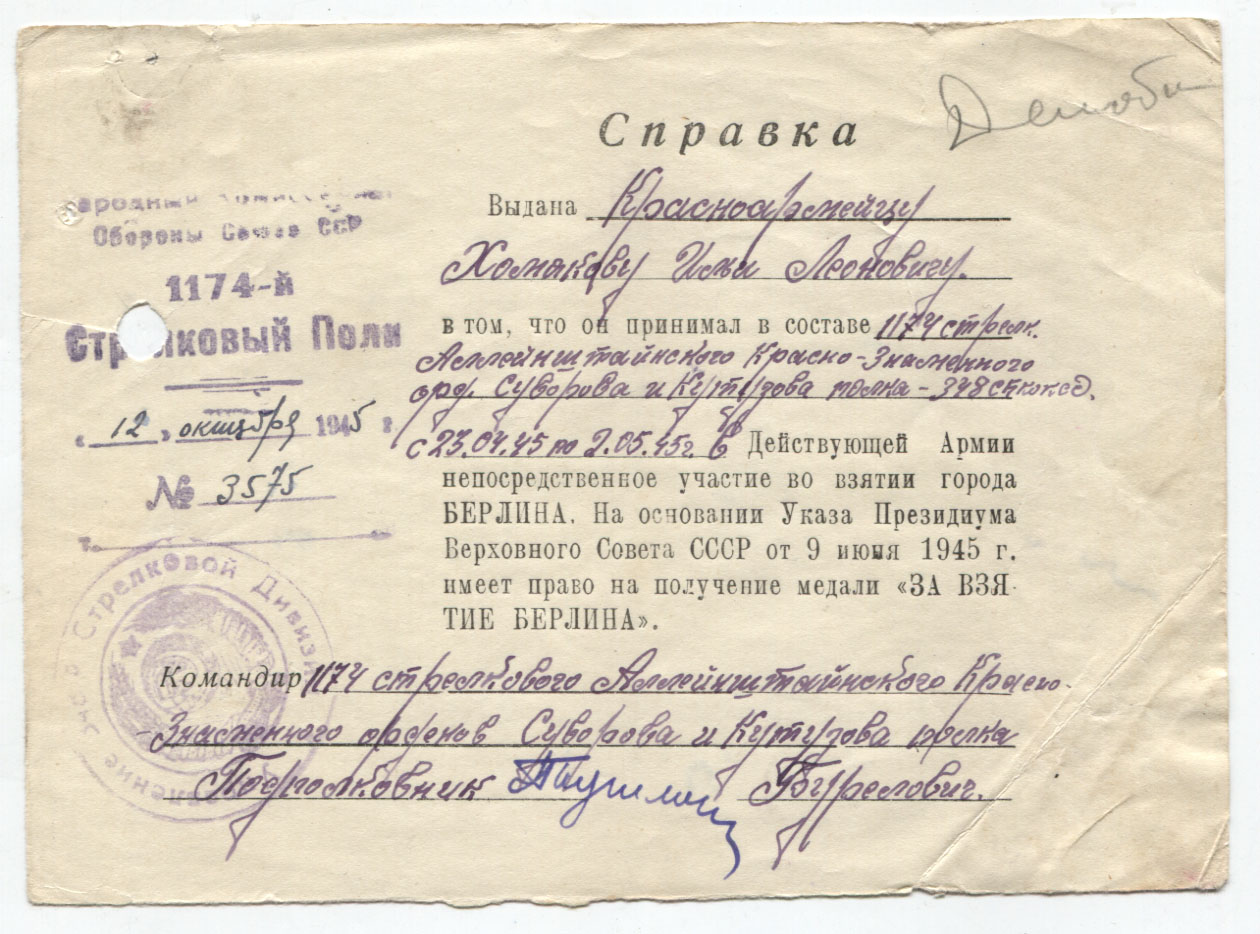 Справка
Выдана Красноармейцу
Хомякову Илье Леоновичу.
в том, что он принимал в составе 1174 стрелк.
Алленштайнского Красно-Знаменного
орд. Суворова и Кутузова полка - 348
с 23.04.45 по 2.05.45г. в Действующей Армии
непосредственное участие во взятии города
БЕРЛИНА. На основании Указа Президиума
Верховного Совета СССР от 9 июня 1945 г.
имеет право на получение медали «ЗА ВЗЯ-
ТИЕ БЕРЛИНА».
Командир 1174 стрелкового Алленштайнского Красно-
Знаменного орденов Суворова и Кутузова полка
Подполковник
Обороны Союза ССР
1174-й
Стрелковый Полк
« 12 » октября 1945 г.
№ 3575
Стрелковой Дивизии